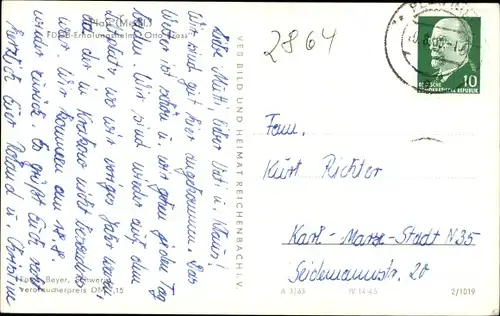 Plau (Meckl.)
FDGB-Erholungsheim „Otto
Liebe Mutti, lieber Vati u. Klaus!
Wir sind gut hier angekommen. Das
Wetter ist schön u. wir gehen jeden Tag
baden. Wir sind wieder auf dem
wo wir voriges Jahr waren,
da der in Krakow nicht besonders
war. Wir kommen am 18.8.
wieder zurück. Es grüßt Euch recht
herzlich Euer Roland u. Christine
Beyer,
Verbraucherpreis DM -,15
VEB BILD UND HEIMAT REICHENBACH i. V.
2864
10
DEUTSCHE
DEMOKRATISCHE REPUBLIK
Fam.
Kurt Richter
Karl-Marx-Stadt N35
Seidemannstr. 20
A 3/63 IV-14-45 2/1019